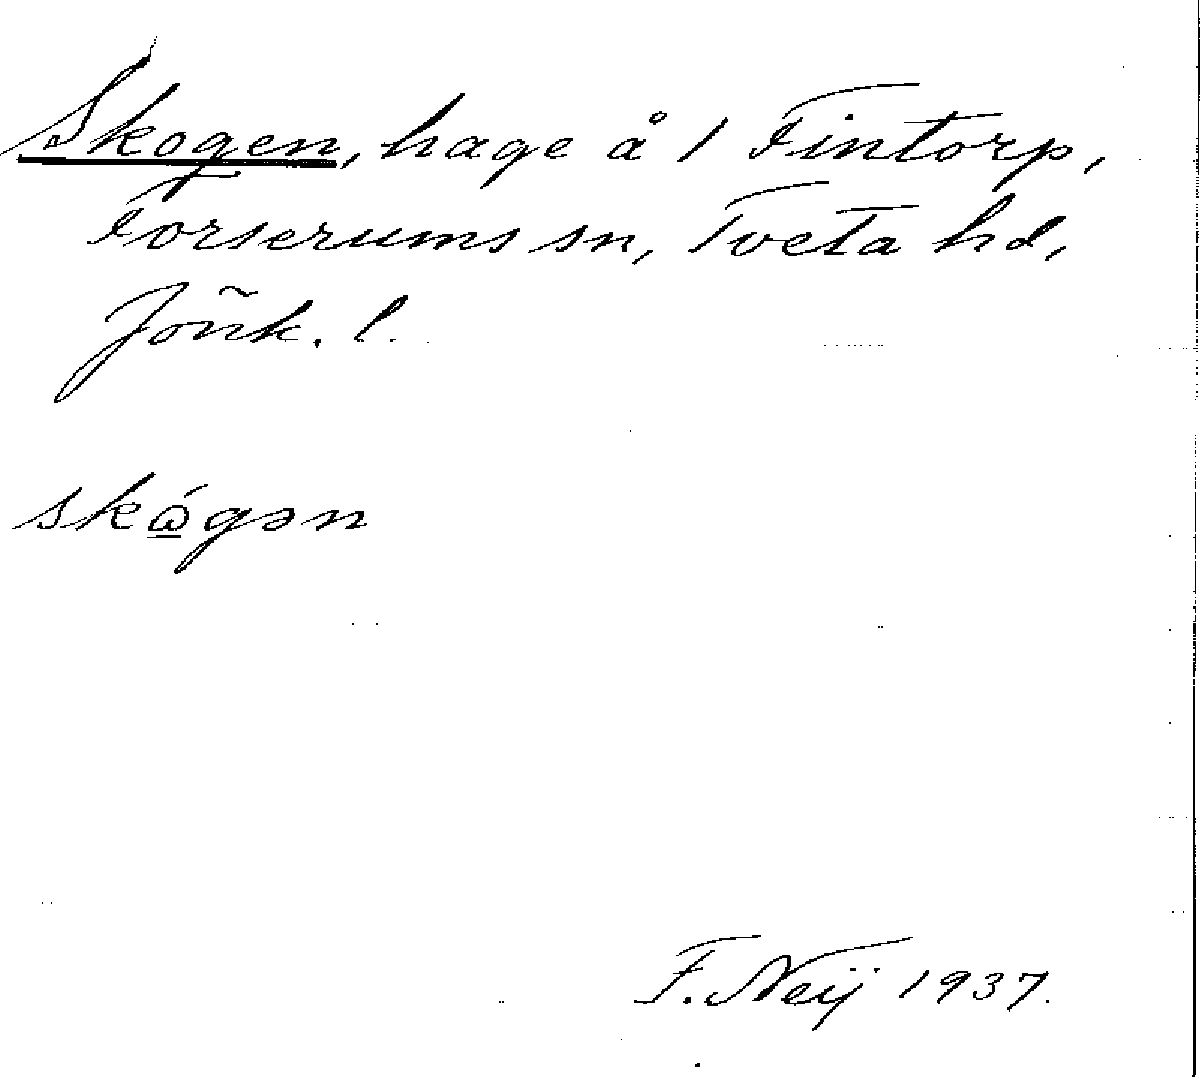 Skogen, hage å 1 Fintorp,
Forserums sn, Tveta hd,
Jöñk. l.
skώ̲gən
F. Neij 1937.